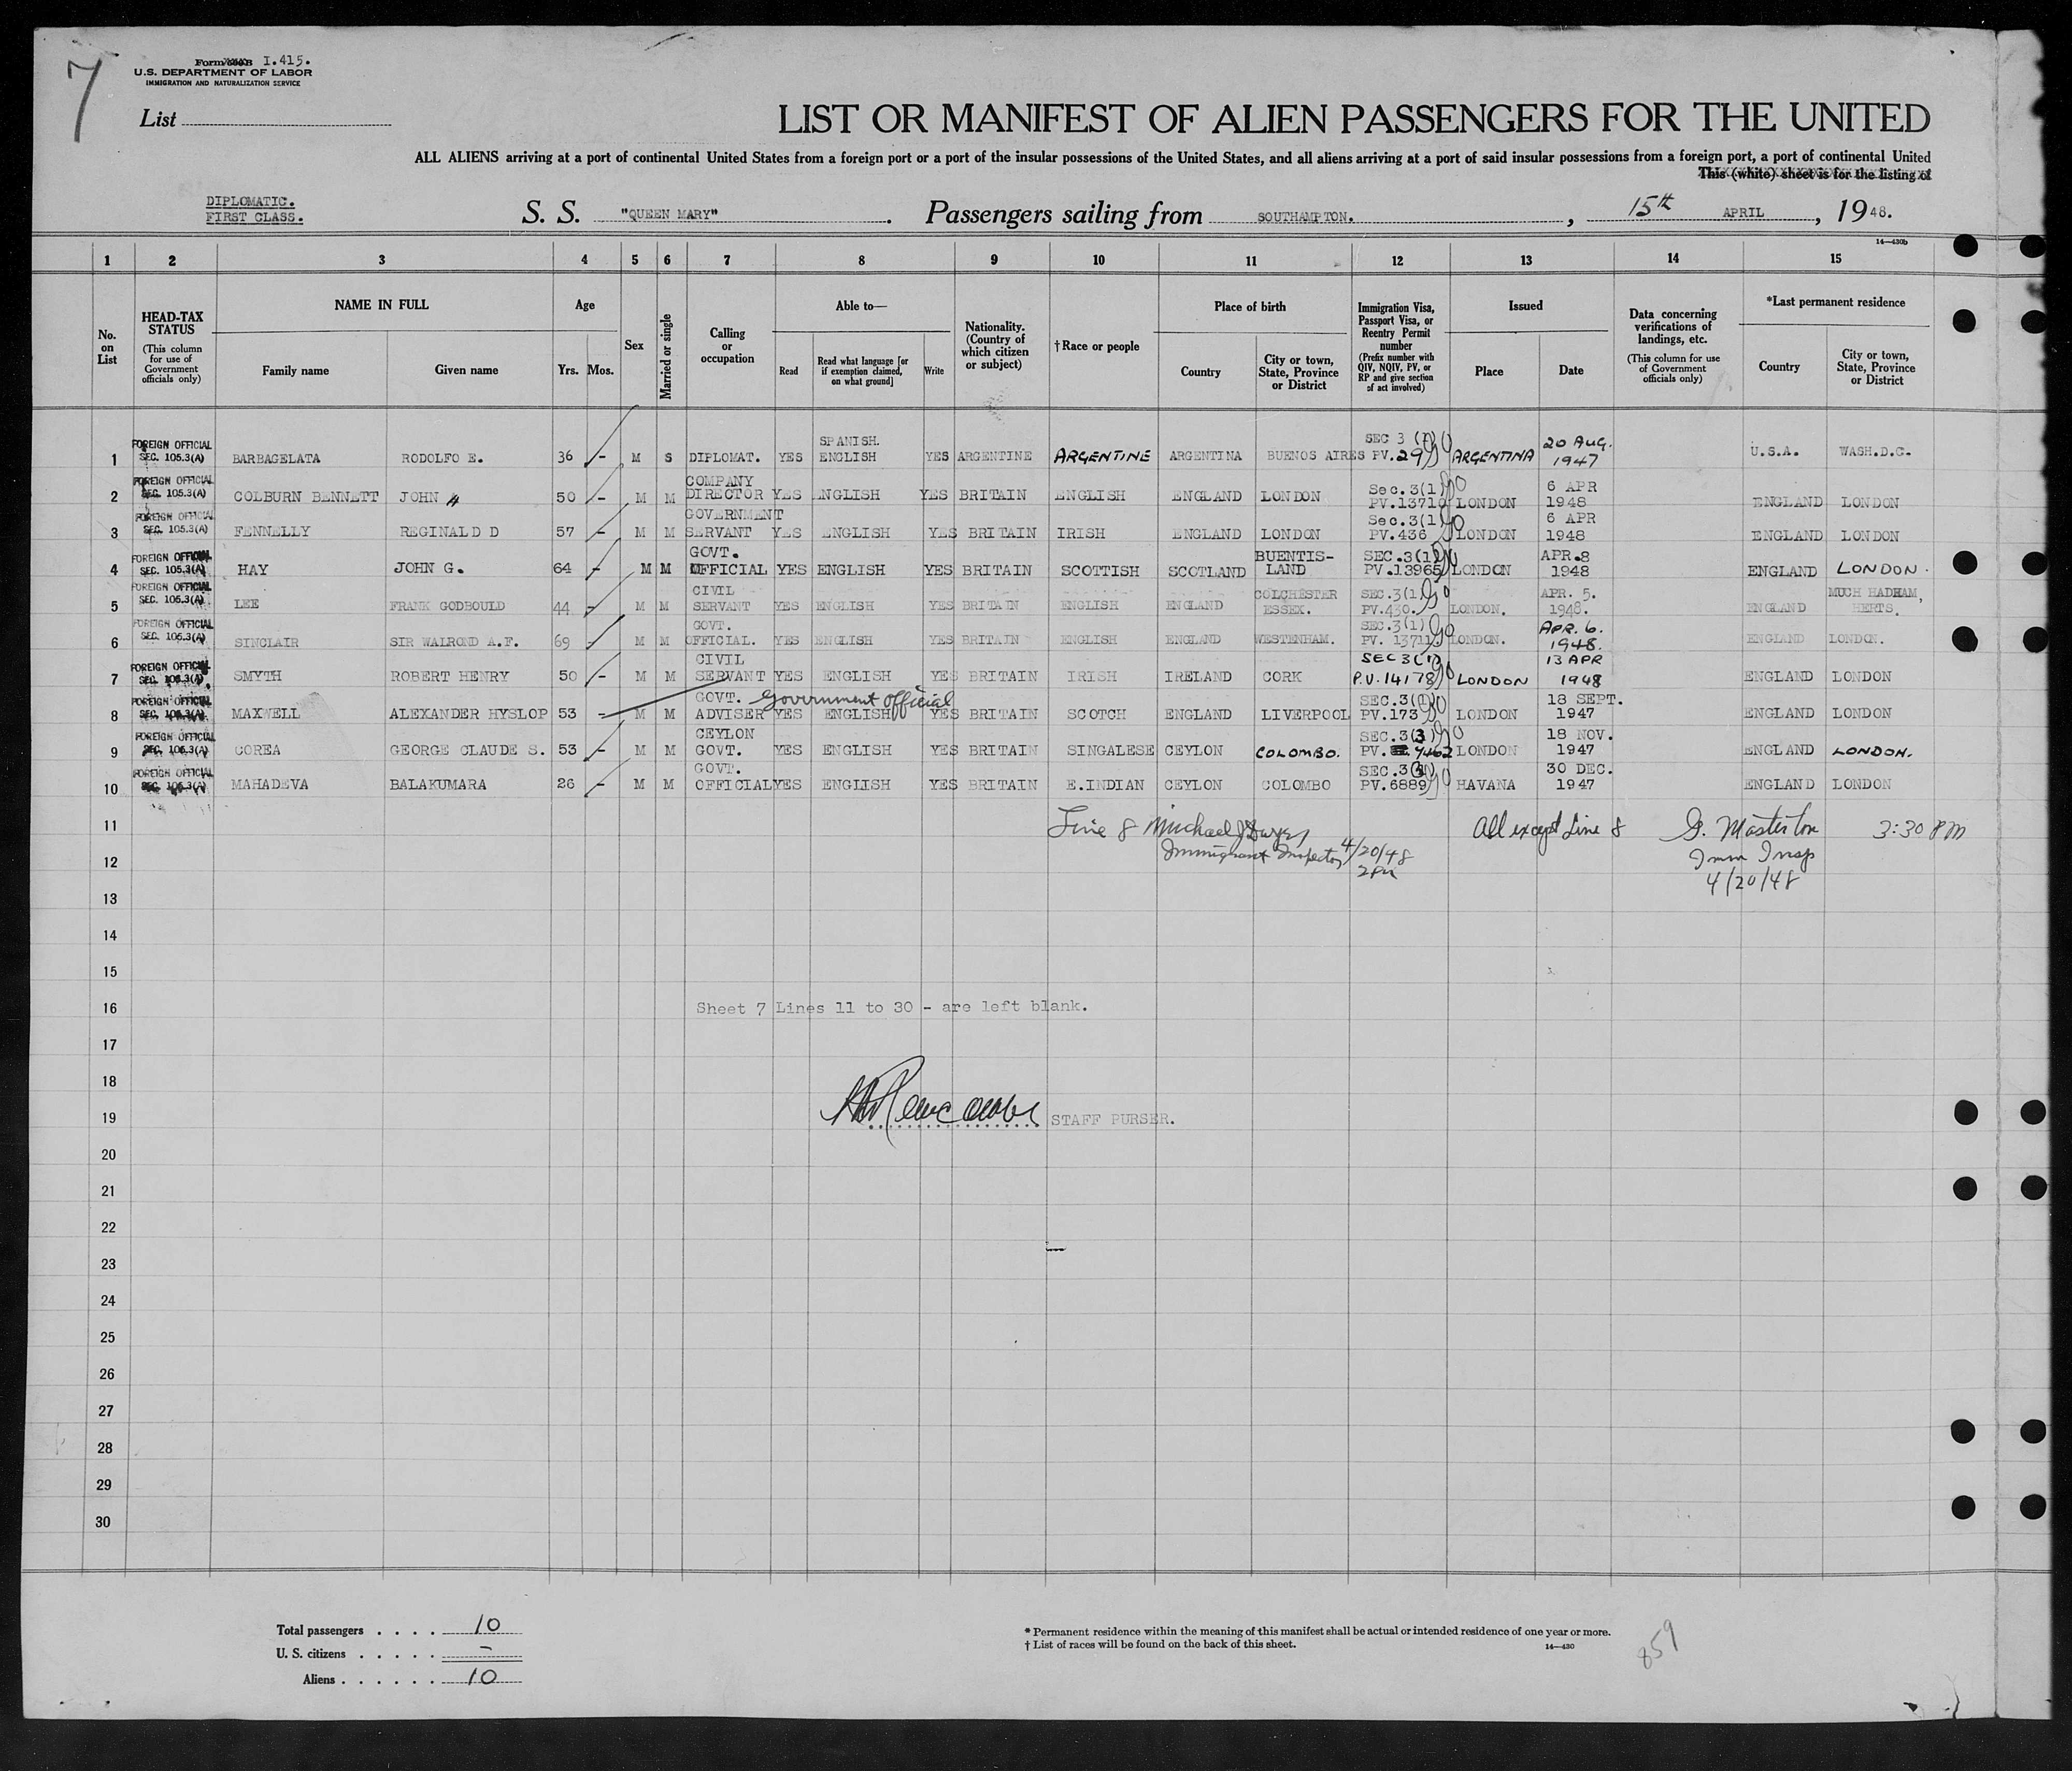 7
Form I.415.
U.S. DEPARTMENT OF LABOR
IMMIGRATION AND NATURALIZATION SERVICE
List
LIST OR MANIFEST OF ALIEN PASSENGERS FOR THE UNITED
ALL ALIENS arriving at a port of continental United States from a foreign port or a port of the insular possessions of the United States, and all aliens arriving at a port of said insular possessions from a foreign port, a port of continental United
This (white) sheet is for the listing of
DIPLOMATIC.
FIRST CLASS.
S. S. "QUEEN MARY". Passengers sailing from SOUTHAMPTON., 15th APRIL, 1948.
14—430b
1 2 3 4 5 6 7 8 9 10 11 12 13 14 15
No. on List
HEAD-TAX STATUS (This column for use of Government officials only)
NAME IN FULL Family name Given name
Age Yrs. Mos.
Sex
Married or single
Calling or occupation
Able to— Read Read what language [or if exemption claimed, on what ground] Write
Nationality. (Country of which citizen or subject)
†Race or people
Place of birth Country City or town, State, Province or District
Immigration Visa, Passport Visa, or Reentry Permit number (Prefix number with QIV, NQIV, PV, or RP and give section of act involved)
Issued Place Date
Data concerning verifications of landings, etc. (This column for use of Government officials only)
*Last permanent residence Country City or town, State, Province or District
1 FOREIGN OFFICIAL SEC. 105.3(A) BARBAGELATA RODOLFO E. 36 - M S DIPLOMAT. YES SPANISH. ENGLISH YES ARGENTINE ARGENTINE ARGENTINA BUENOS AIRES SEC 3 (1) PV.29 ARGENTINA 20 AUG. 1947 U.S.A. WASH.D.C.
2 FOREIGN OFFICIAL SEC. 105.3(A) COLBURN BENNETT JOHN H 50 - M M COMPANY DIRECTOR YES ENGLISH YES BRITAIN ENGLISH ENGLAND LONDON Sec.3(1) PV.13710 LONDON 6 APR 1948 ENGLAND LONDON
3 FOREIGN OFFICIAL SEC. 105.3(A) FENNELLY REGINALD D 57 - M M GOVERNMENT SERVANT YES ENGLISH YES BRITAIN IRISH ENGLAND LONDON Sec.3(1) PV.436 LONDON 6 APR 1948 ENGLAND LONDON
4 FOREIGN OFFICIAL SEC. 105.3(A) HAY JOHN G. 64 - M M GOVT. OFFICIAL YES ENGLISH YES BRITAIN SCOTTISH SCOTLAND BUENTIS-LAND SEC.3(1) PV.13965 LONDON APR.8 1948 ENGLAND LONDON.
5 FOREIGN OFFICIAL SEC. 105.3(A) LEE FRANK GODBOULD 44 - M M CIVIL SERVANT YES ENGLISH YES BRITAIN ENGLISH ENGLAND COLCHESTER ESSEX. SEC.3(1) PV.430. LONDON. APR. 5. 1948. ENGLAND MUCH HADHAM, HERTS.
6 FOREIGN OFFICIAL SEC. 105.3(A) SINCLAIR SIR WALROND A.F. 69 - M M GOVT. OFFICIAL. YES ENGLISH YES BRITAIN ENGLISH ENGLAND WESTENHAM. SEC.3(1) PV. 13711 LONDON. APR. 6. 1948. ENGLAND LONDON.
7 FOREIGN OFFICIAL SEC. 105.3(A) SMYTH ROBERT HENRY 50 - M M CIVIL SERVANT YES ENGLISH YES BRITAIN IRISH IRELAND CORK SEC 3(1) P.V.14178 LONDON 13 APR 1948 ENGLAND LONDON
8 FOREIGN OFFICIAL SEC. 105.3(A) MAXWELL ALEXANDER HYSLOP 53 - M M GOVT. ADVISER Government official YES ENGLISH YES BRITAIN SCOTCH ENGLAND LIVERPOOL SEC.3(1) PV.173 LONDON 18 SEPT. 1947 ENGLAND LONDON
9 FOREIGN OFFICIAL SEC. 105.3(A) COREA GEORGE CLAUDE S. 53 - M M CEYLON GOVT. YES ENGLISH YES BRITAIN SINGALESE CEYLON COLOMBO. SEC.3(3) PV. 7462 LONDON 18 NOV. 1947 ENGLAND LONDON.
10 FOREIGN OFFICIAL SEC. 105.3(A) MAHADEVA BALAKUMARA 26 - M M GOVT. OFFICIAL YES ENGLISH YES BRITAIN E.INDIAN CEYLON COLOMBO SEC.3 PV.6889 HAVANA 30 DEC. 1947 ENGLAND LONDON
11 Line 8 Michael J Dwyer All except Line 8 G. Masterton 3:30 PM
12 Immigrant Inspector 4/20/48 2PM Imm Insp 4/20/48
13
14
15
16 Sheet 7 Lines 11 to 30 - are left blank.
17
18
19 STAFF PURSER.
20
21
22
23
24
25
26
27
28
29
30
Total passengers . . . . 10
U. S. citizens . . . . . -
Aliens . . . . . . 10
* Permanent residence within the meaning of this manifest shall be actual or intended residence of one year or more.
† List of races will be found on the back of this sheet.
14—430
859